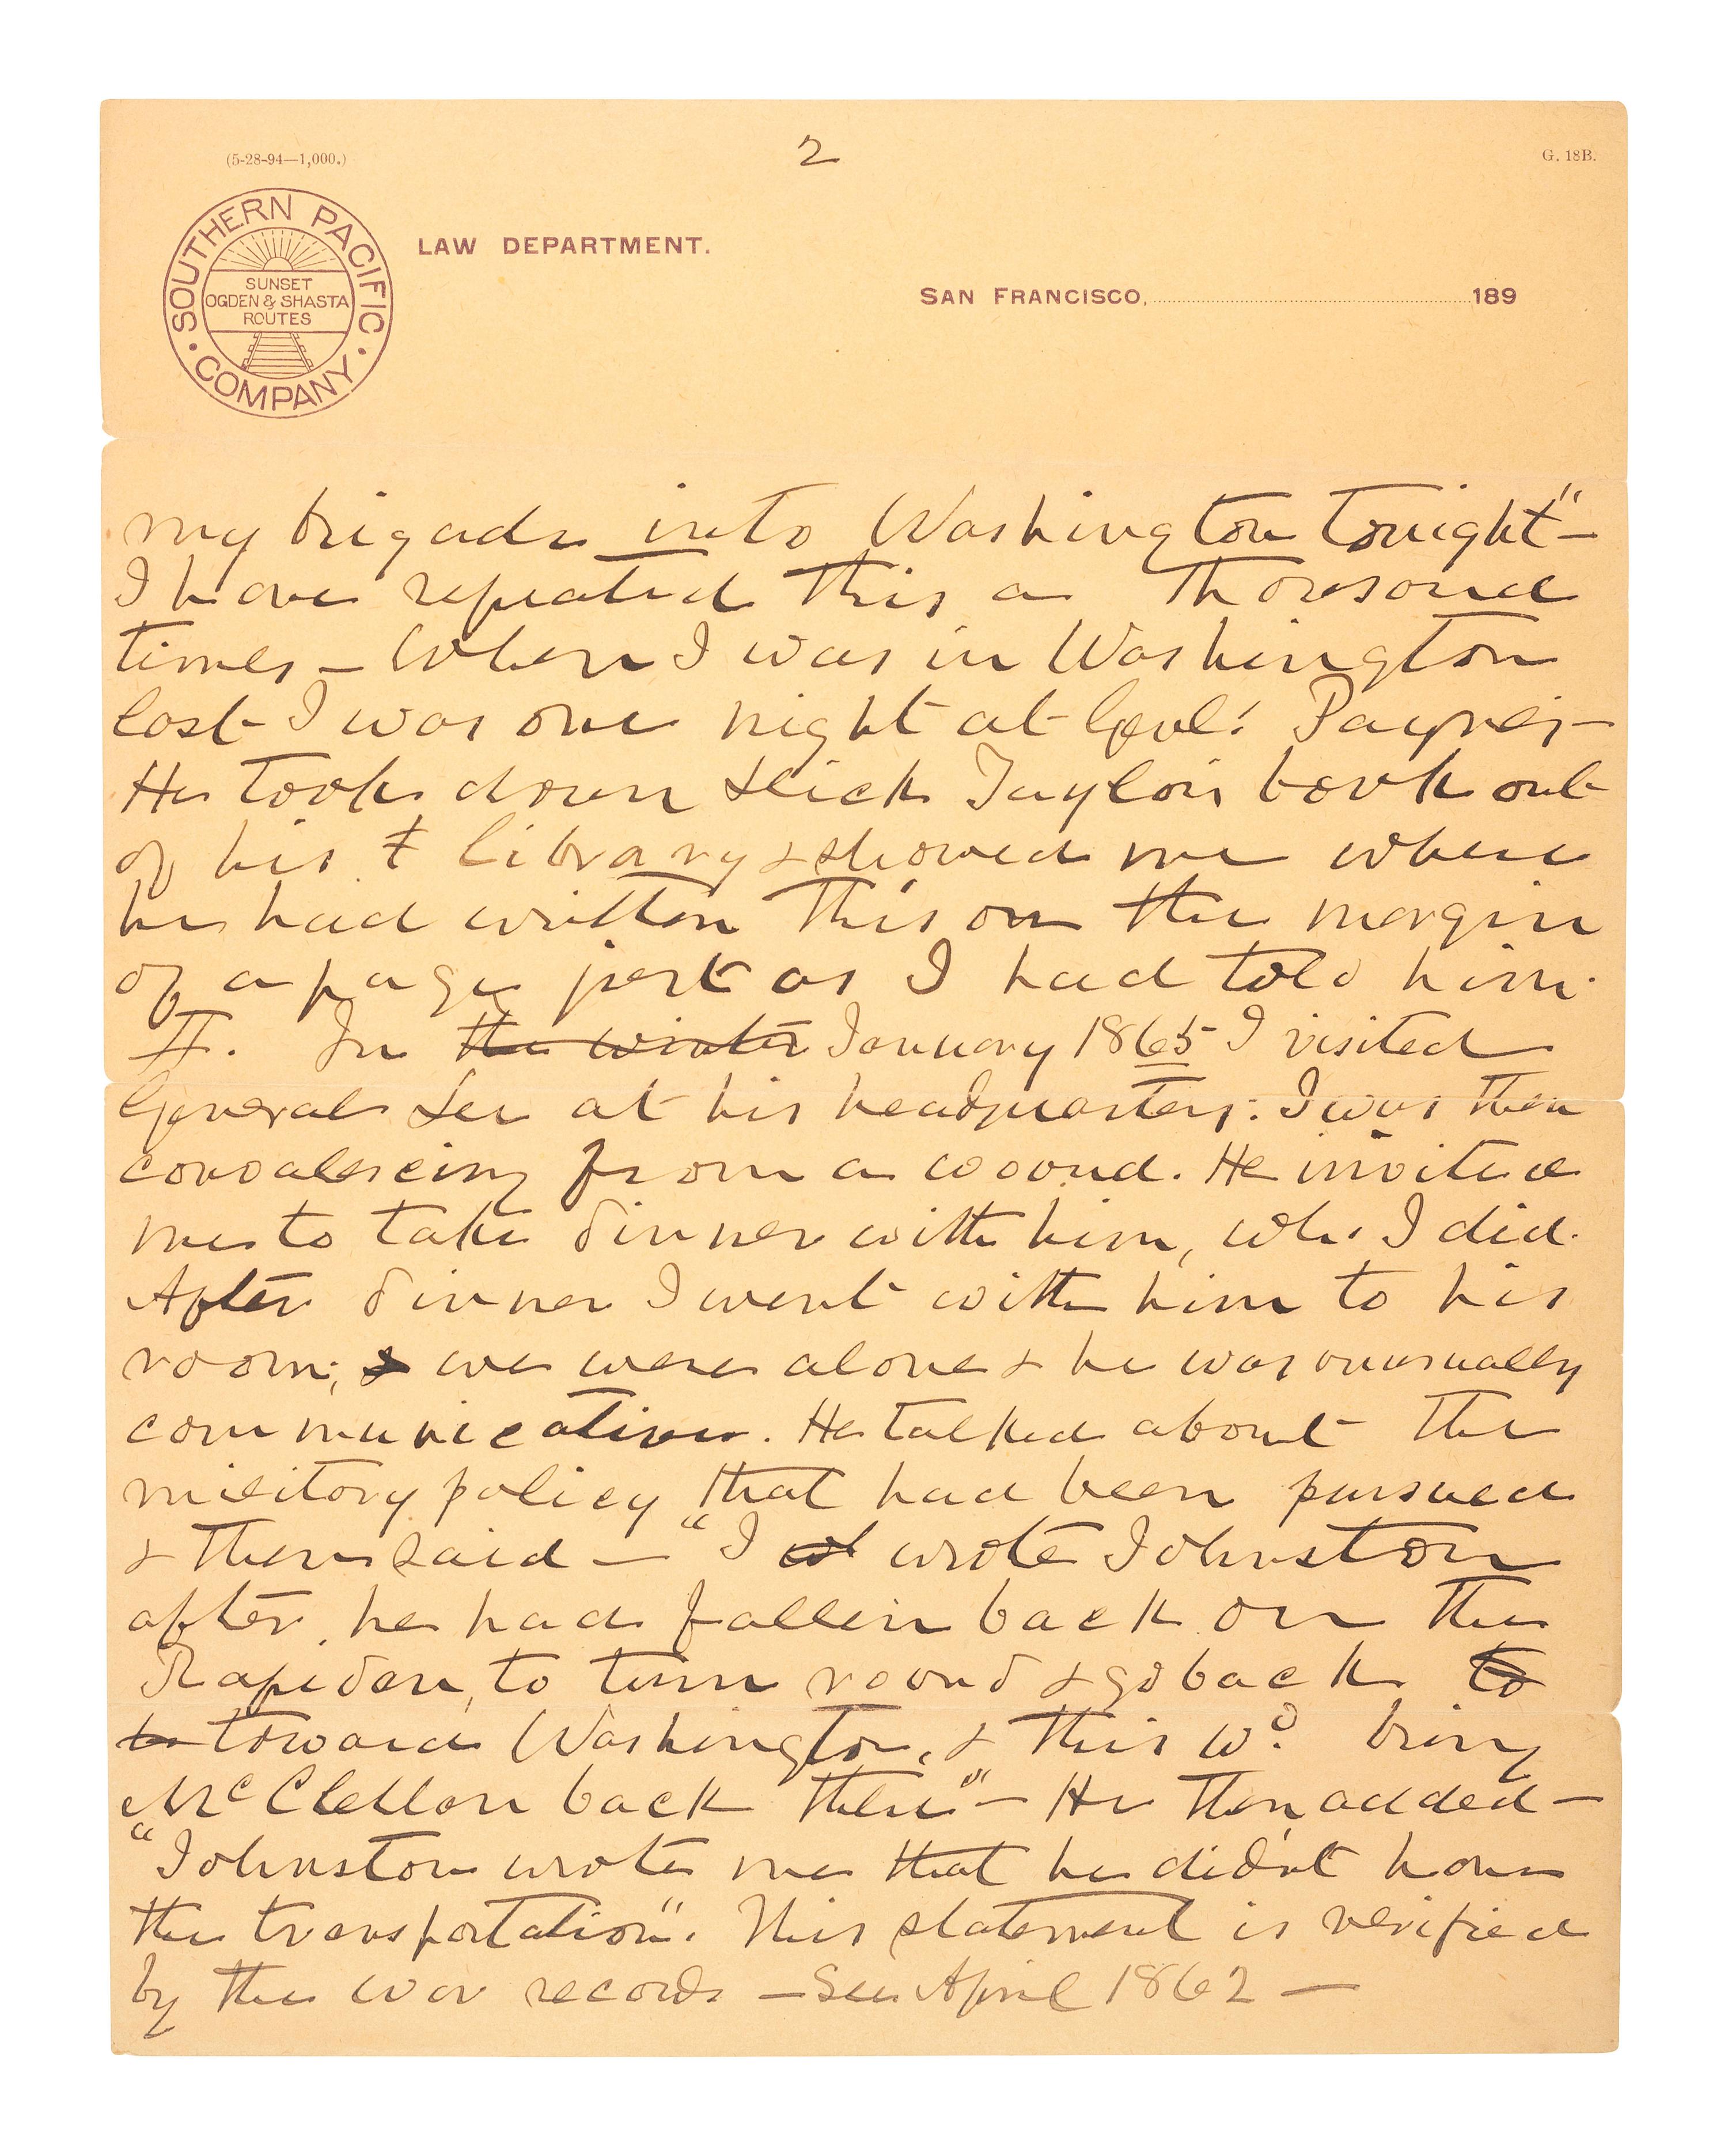 (5-28-94—1,000.)
2
G. 18B.
SOUTHERN PACIFIC COMPANY
SUNSET
OGDEN & SHASTA
ROUTES
LAW DEPARTMENT.
SAN FRANCISCO, 189
my brigade into Washington tonight"—
I have repeated this a thousand
times — When I was in Washington
last I was one night at Genl. Paynes—
He took down Dick Taylors book out
of his library & showed me where
he had written this on the margin
of a page just as I had told him.
II. In the winter January 1865 I visited
General Lee at his headquarters: I was then
convalescing from a wound. He invited
me to take dinner with him, wh. I did.
After dinner I went with him to his
room; & we were alone & he was unusually
communicative. He talked about the
military policy that had been pursued
& then said — "I wrote Johnston
after he had fallen back on the
Rapidan, to turn round & go back to
to toward Washington, & this wd. bring
McClellan back there" — He then added —
"Johnston wrote me that he didn't have
the transportation". This statement is verified
by the war records — See April 1862 —